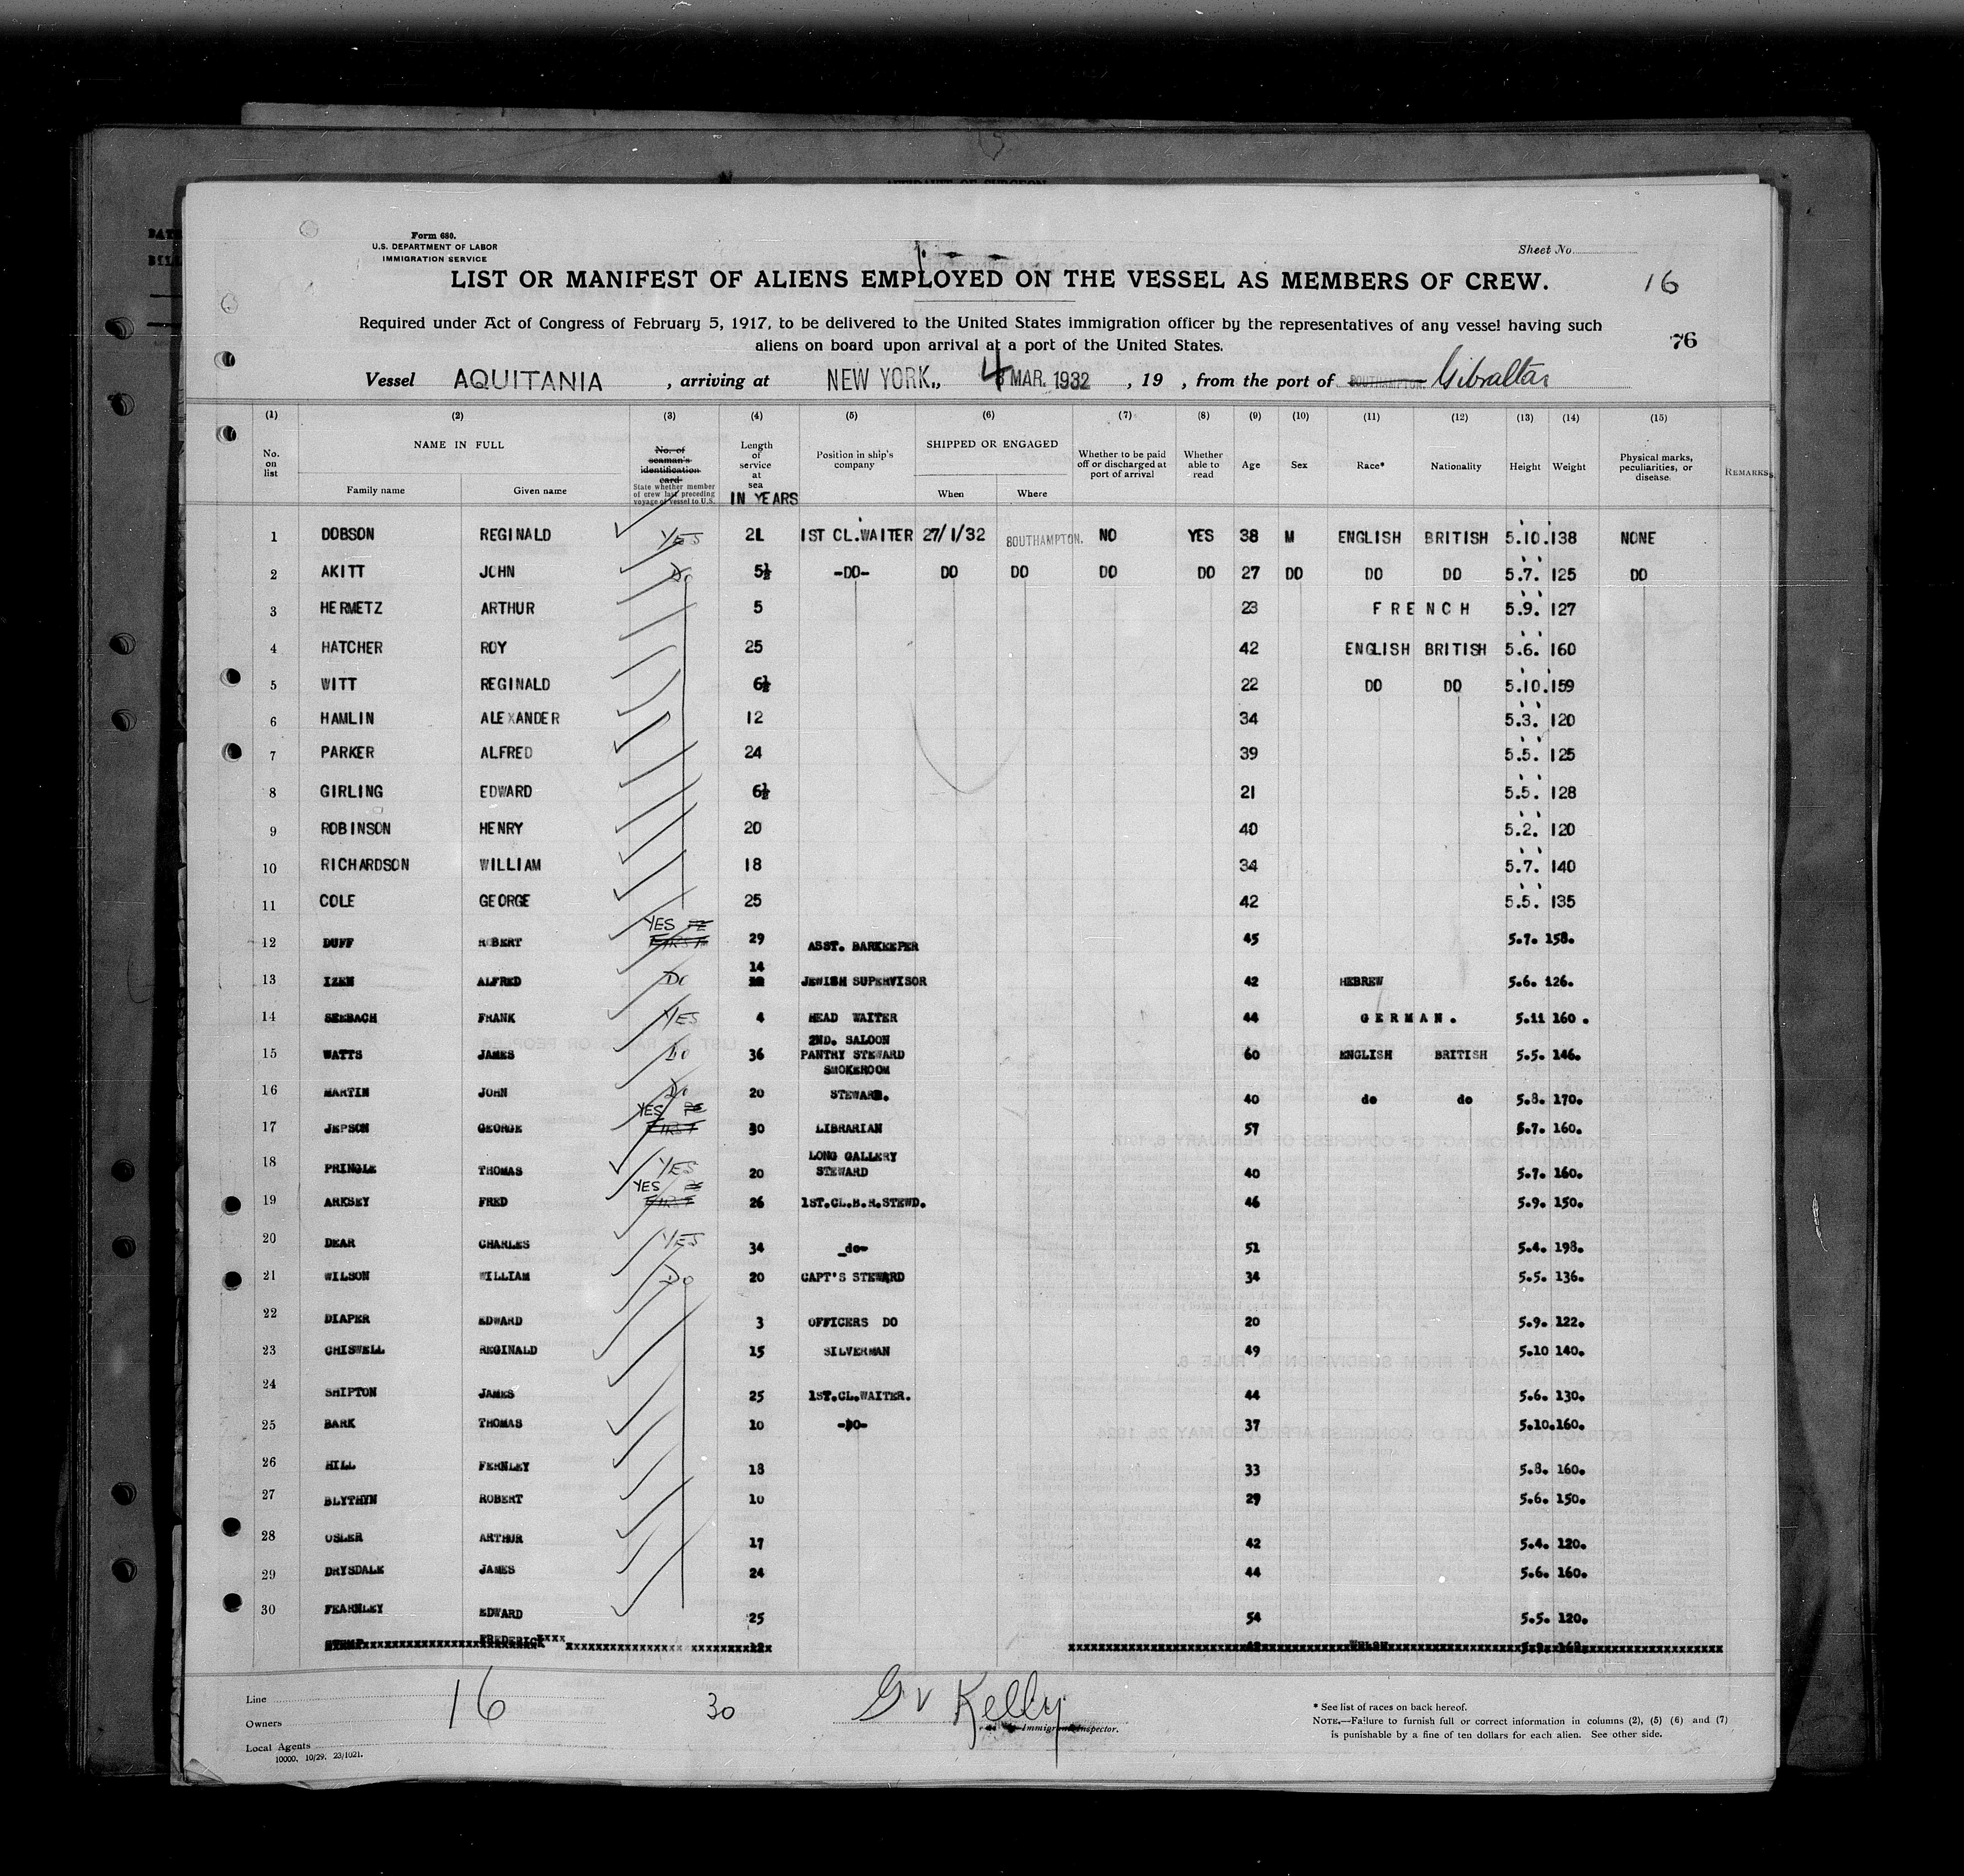 Form 680.
U.S. DEPARTMENT OF LABOR
IMMIGRATION SERVICE
Sheet No.
LIST OR MANIFEST OF ALIENS EMPLOYED ON THE VESSEL AS MEMBERS OF CREW.
16
Required under Act of Congress of February 5, 1917, to be delivered to the United States immigration officer by the representatives of any vessel having such
76
aliens on board upon arrival at a port of the United States.
Vessel AQUITANIA , arriving at NEW YORK., 4 MAR. 1932 , 19 , from the port of SOUTHAMPTON. Gibraltar
(1) (2) (3) (4) (5) (6) (7) (8) (9) (10) (11) (12) (13) (14) (15)
No. on list NAME IN FULL Family name Given name No. of seaman's identification card State whether member of crew last preceding voyage of vessel to U.S. Length of service at sea IN YEARS Position in ship's company SHIPPED OR ENGAGED When Where Whether to be paid off or discharged at port of arrival Whether able to read Age Sex Race* Nationality Height Weight Physical marks, peculiarities, or disease REMARKS
1 DOBSON REGINALD YES 21 1ST CL.WAITER 27/1/32 SOUTHAMPTON. NO YES 38 M ENGLISH BRITISH 5.10. 138 NONE
2 AKITT JOHN Do 5½ -DO- DO DO DO DO 27 DO DO DO 5.7. 125 DO
3 HERMETZ ARTHUR 5 23 FRENCH 5.9. 127
4 HATCHER ROY 25 42 ENGLISH BRITISH 5.6. 160
5 WITT REGINALD 6½ 22 DO DO 5.10. 159
6 HAMLIN ALEXANDER 12 34 5.3. 120
7 PARKER ALFRED 24 39 5.5. 125
8 GIRLING EDWARD 6½ 21 5.5. 128
9 ROBINSON HENRY 20 40 5.2. 120
10 RICHARDSON WILLIAM 18 34 5.7. 140
11 COLE GEORGE 25 42 5.5. 135
12 DUFF ROBERT YES FIRST 29 ASST. BARKEEPER 45 5.7. 158.
13 IZEN ALFRED Do 14 JEWISH SUPERVISOR 42 HEBREW 5.6. 126.
14 SEEBACH FRANK YES 4 HEAD WAITER 44 GERMAN. 5.11 160.
15 WATTS JAMES Do 36 2ND. SALOON PANTRY STEWARD 60 ENGLISH BRITISH 5.5. 146.
16 MARTIN JOHN Do 20 SMOKEROOM STEWARD. 40 do do 5.8. 170.
17 JEPSON GEORGE YES FIRST 30 LIBRARIAN 57 5.7. 160.
18 PRINGLE THOMAS YES 20 LONG GALLERY STEWARD 40 5.7. 160.
19 ARKSEY FRED YES FIRST 26 1ST.CL.B.R.STEWD. 46 5.9. 150.
20 DEAR CHARLES YES 34 -do- 51 5.4. 198.
21 WILSON WILLIAM Do 20 CAPT'S STEWARD 34 5.5. 136.
22 DIAPER EDWARD 3 OFFICERS DO 20 5.9. 122.
23 CHISWELL REGINALD 15 SILVERMAN 49 5.10 140.
24 SHIPTON JAMES 25 1ST.CL.WAITER. 44 5.6. 130.
25 BARK THOMAS 10 -DO- 37 5.10. 160.
26 HILL FERNLEY 18 33 5.8. 160.
27 BLYTHYN ROBERT 10 29 5.6. 150.
28 OSLER ARTHUR 17 42 5.4. 120.
29 DRYSDALE JAMES 24 44 5.6. 160.
30 FEARNLEY EDWARD 25 54 5.5. 120.
FREDERICK 12 WELSH
Line
Owners
Local Agents
10000. 10/29. 23/1021.
16
30
G V Kelly
Immigrant Inspector.
* See list of races on back hereof.
NOTE.—Failure to furnish full or correct information in columns (2), (5) (6) and (7)
is punishable by a fine of ten dollars for each alien. See other side.